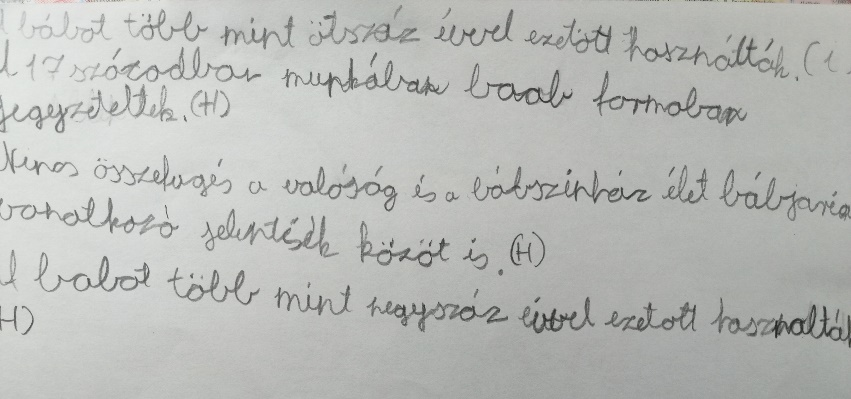 A bábot több mint ötszáz évvel ezetött használták. (I
A 17 százodbar munkában baab formobar
jegyzetelték. (H)
Nincs összefugés a valóság és a bábszinház élet bábjaria
vonatkozó jelentések között is. (H)
A babot több mint negyszáz évvel ezetott hasznalták
H)